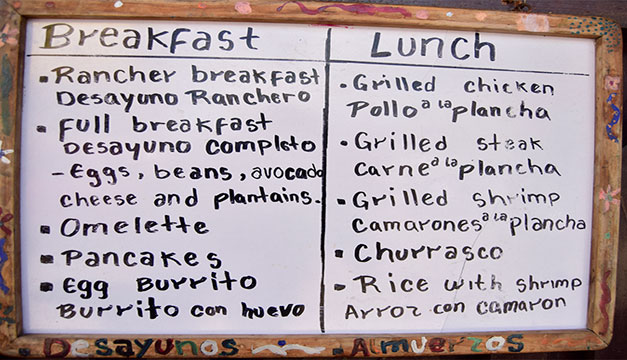 Breakfast
• Rancher breakfast
Desayuno Ranchero
• full breakfast
Desayuno completo
- Eggs, beans, avocado
cheese and plantains.
• Omelette
• Pancakes
• Egg Burrito
Burrito con huevo
Lunch
• Grilled chicken
Pollo a la plancha
• Grilled steak
Carne a la plancha
• Grilled shrimp
Camarones a la plancha
• Churrasco
• Rice with shrimp
Arroz con camaron
Desayunos
Almuerzos